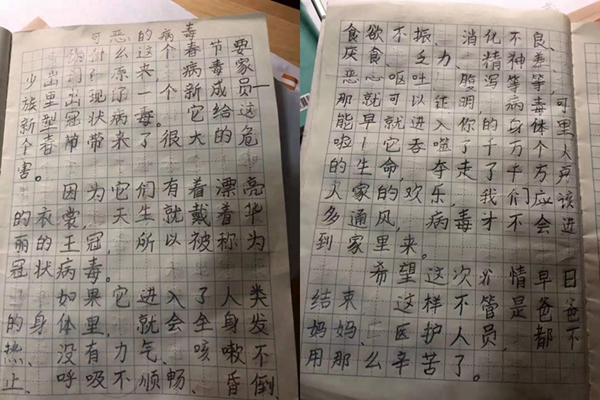 可恶的病毒
为什么这个春节要
少出门 原来病毒家
族里出现了一个新成员—
新型冠状病毒。它给这
个春节带来了很大的危
害。
因为它们有着漂亮
的衣裳,天生就戴着华
丽的王冠,所以被称为
冠状病毒。
如果它进入了人类
的身体里,就会全身发
热、没有力气、咳嗽不
止、呼吸不顺畅、昏倒、
食欲不振、消化不良、
厌食、乏力、精神
恶心呕吐、腹泻等等,
那就可以证明,病毒可
能早就进入你的身体里
啦!它吞噬了千千万万
的生命,夺走了
人家的欢乐,我们应该
多通风,病毒才不会进
到家里来。
希望这次疫情早日
结束,这样不管是爸爸
妈妈、医护人员,都不
用那么辛苦了。